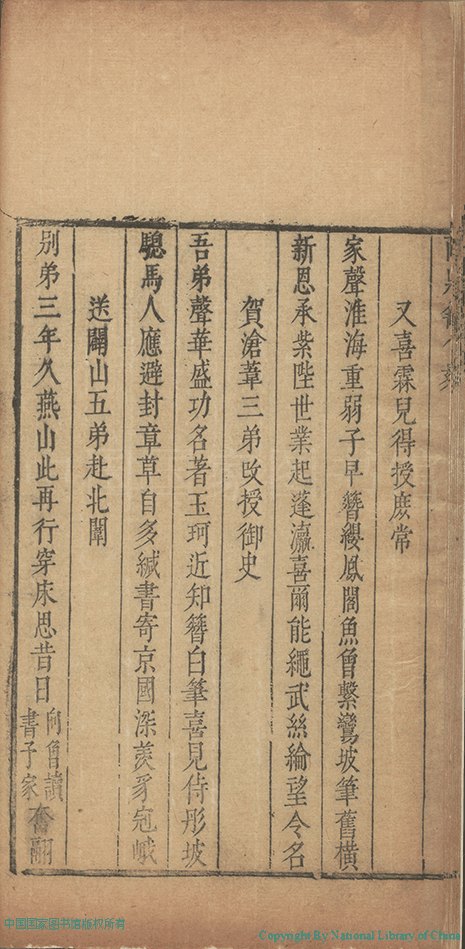 又喜霖兒得授庶常
家聲淮海重弱子早簪纓鳳閣魚曾繫鸞坡筆舊橫
新恩承紫陛世業起蓬瀛喜爾能繩武絲綸望令名
賀滄葦三弟改授御史
吾弟聲華盛功名著玉珂近知簪白筆喜見侍彤坡
驄馬人應避封章草自多緘書寄京國深羡豸冠峨
送闇山五弟赴北闈
別弟三年久燕山此再行穿床思昔日向曾讀書子家奮翮
中国国家图书馆版权所有
Copyright By National Library of China